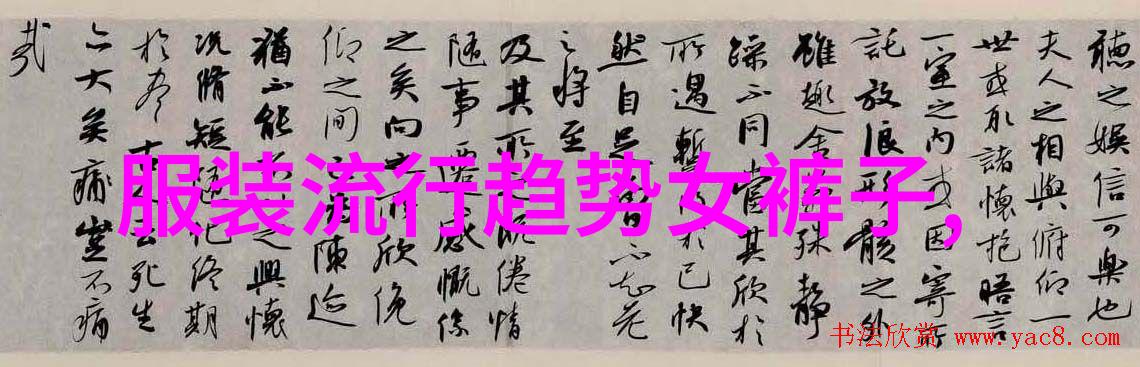 聽之娱信可樂也
夫人之相與俯仰一
世或取諸懷抱晤言
一室之內或因寄所
託放浪形骸之外
雖趣舍殊靜
躁不同當其欣於
所遇暫於己快
然自足不知老
之將至
及其所之既倦情
隨事遷感慨係
之矣向之所欣俛
仰之間陳迹
猶不能之興懷
況脩短随化終期
於盡云死生
亦大矣痛豈不痛
哉
服装流行趋势女裤子,
书法欣赏 www.yac8.com